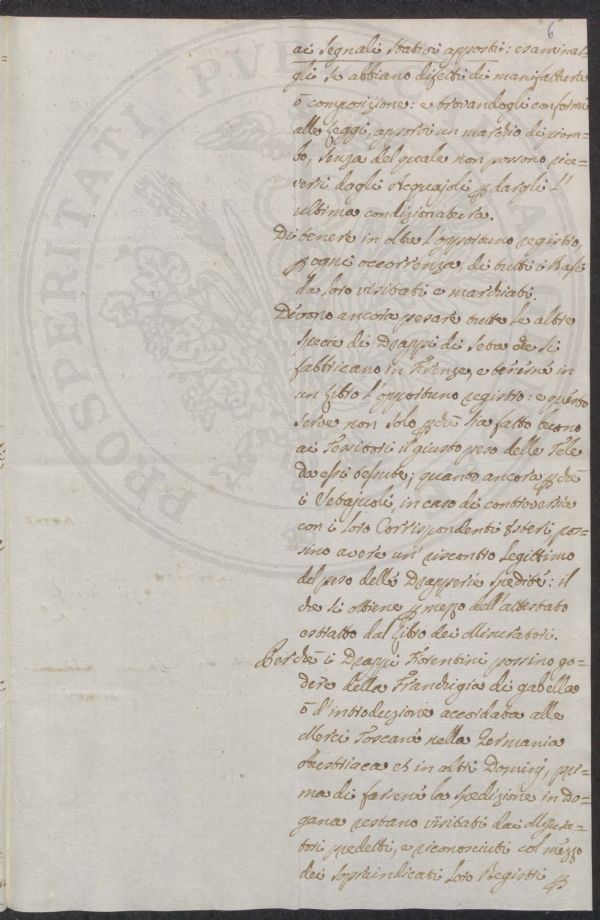 6
ai segnali stativi apposti: esaminar-
gli se abbiano difetti di manifatture
ò composizione: e trovandogli conformi
alle Leggi, apporvi un marchio di piom-
bo, senza del quale non possono rice-
versi dagli Acquajoli p dargli l'
ultima condizionatura.
Di tenere in oltre l'opportuno registro,
p ogni occorrenza, di tutti i Rasi
da loro visitati e marchiati.
Devono ancora pesare tutte le altre
specie di Drappi di seta che si
fabbricano in Firenze, e tenerne in
un Libro l'opportuno registro: e questo
serve non solo p che sia fatto buono
ai Tessitori il giusto peso delle Tele
da essi tessute; quanto ancora p che
i Setajuoli, in caso di controversia
con i loro Corrispondenti Esteri pos-
sino avere un riscontro legittimo
del peso delle Drapperie spedite: il
che si ottiene p mezzo dell'attestato
estratto dal Libro dei Misuratori.
Perchè i Drappi Fiorentini possino go-
dere della Franchigia di gabella
ò d'introduzione accordata alle
Merci Toscane nella Germania
Austriaca et in altri Dominj, pri-
ma di farsene la spedizione in Do-
gana restano visitati dai Misura-
tori predetti, e riconosciuti col mezzo
dei sopraindicati loro Registri p
PROSPERITATI PVBLICAE